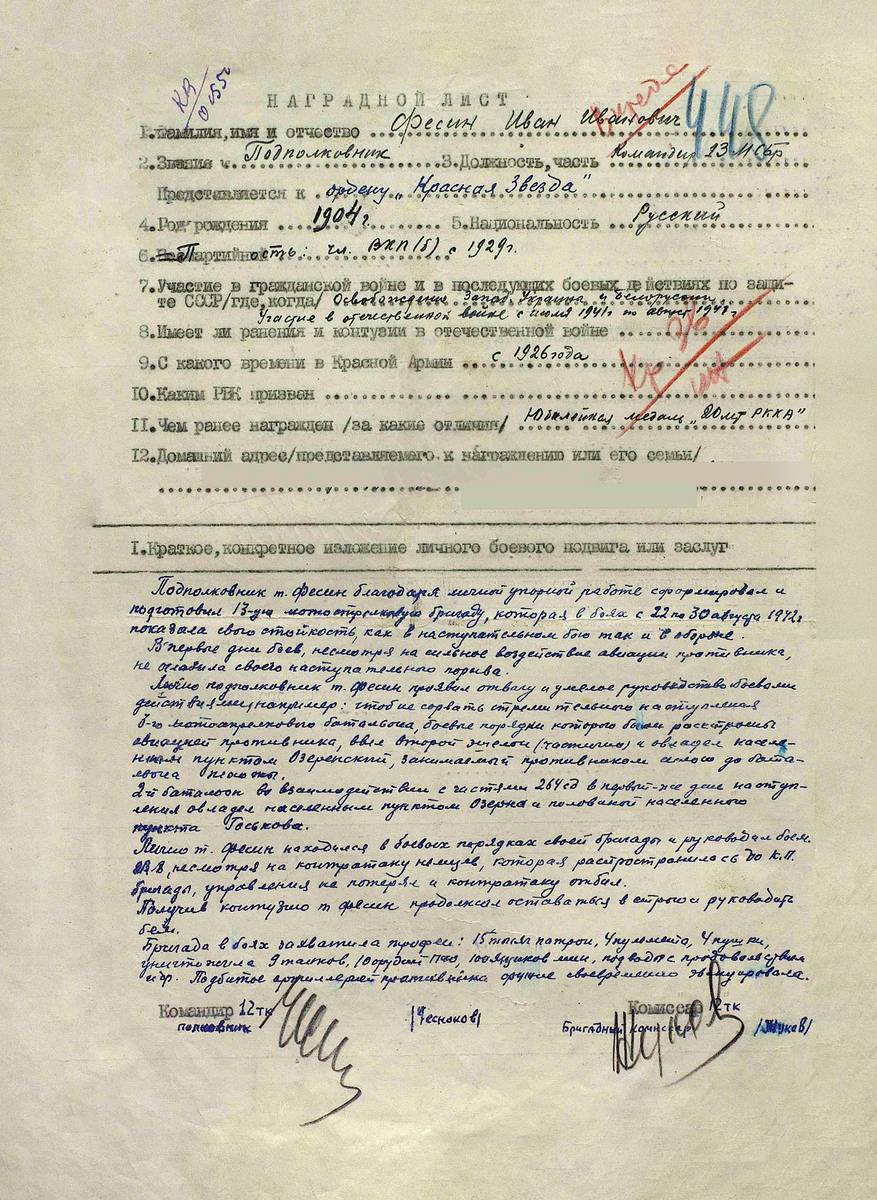 КЗ
0 555
448
НАГРАДНОЙ ЛИСТ
1.Фамилия,имя и отчество ... Фесин Иван Иванович
2.Звание т. Подполковник 3.Должность,часть Командир 23 МСБр
Представляется к ордену „Красная Звезда"
4.Род рождения 1904 г. 5.Национальность Русский
6. Партийность: чл. ВКП(б) с 1929 г.
7.Участие в гражданской войне и в последующих боевых действиях по защи-
те СССР/где,когда/ Освобождение Запад. Украины и Белоруссии
Участие в отечественной войне с июля 1941 г по август 1942 г
8.Имеет ли ранения и контузии в отечественной войне
9.С какого времени в Красной Армии с 1926 года
10.Каким РВК призван
11.Чем ранее награжден /за какие отличия/ Юбилейная медаль „20 лет РККА"
12.Домашний адрес/представляемого к награждению или его семьи/
I.Краткое,конкретное изложение личного боевого подвига или заслуг
Подполковник т. Фесин благодаря личной упорной работе сформировал и
подготовил 13-ую мотострелковую бригаду, которая в боях с 22 по 30 августа 1942 г
показала свою стойкость, как в наступательном бою так и в обороне.
В первые дни боев, несмотря на сильное воздействие авиации противника,
не ослабила своего наступательного порыва.
Лично подполковник т. Фесин проявил отвагу и умелое руководство боевыми
действиями, например: чтоб не сорвать стремительного наступления
го мотострелкового батальона, боевые порядки которого были расстроены
авиацией противника, ввел второй эшелон (частично) и овладел населен-
ным пунктом Озеренский, занимаемый противником силою до бата-
льона пехоты.
2й батальон во взаимодействии с частями 264 сд в первый-же день наступ-
ления овладел населенным пунктом Озерна и половиной населенного
пункта Госькова.
Лично т. Фесин находился в боевых порядках своей бригады и руководил боем.
несмотря на контратаку немцев, которая распространилась до К.П.
бригады, управления не потерял и контратаку отбил.
Получив контузию т Фесин продолжал оставаться в строю и руководить
боем.
Бригада в боях захватила трофеи: 15 тысяч патрон, 4 пулемета, 4 пушки,
уничтожила 9 танков, 10 орудий ПТО, 100 ящиков мин, подводы с продовольствием
и др. Подбитое артиллерией противника оружие своевременно эвакуировала.
Командир 12 тк Комиссар 12 тк
полковник /Чесноков/ Бригадный комиссар /Жуков/